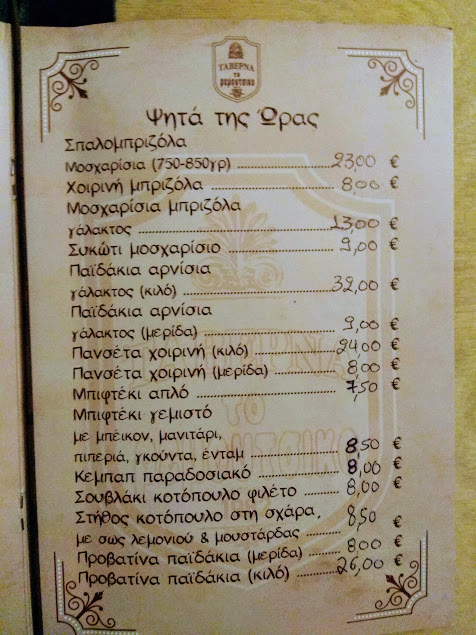 ΤΑΒΕΡΝΑ
το
Ψητά της Ώρας
Σπαλομπριζόλα
Μοσχαρίσια (750-850γρ) ........ 23,00 €
Χοιρινή μπριζόλα ........ 8,00 €
Μοσχαρίσια μπριζόλα
γάλακτος ........ 13,00 €
Συκώτι μοσχαρίσιο ........ 9,00 €
Παϊδάκια αρνίσια
γάλακτος (κιλό) ........ 32,00 €
Παϊδάκια αρνίσια
γάλακτος (μερίδα) ........ 9,00 €
Πανσέτα χοιρινή (κιλό) ........ 24,00 €
Πανσέτα χοιρινή (μερίδα) ........ 8,00 €
Μπιφτέκι απλό ........ 7,50 €
Μπιφτέκι γεμιστό
με μπέικον, μανιτάρι,
πιπεριά, γκούντα, ένταμ ........ 8,50 €
Κεμπαπ παραδοσιακό ........ 8,00 €
Σουβλάκι κοτόπουλο φιλέτο ........ 8,00 €
Στήθος κοτόπουλο στη σχάρα,
με σως λεμονιού & μουστάρδας ........ 8,50 €
Προβατίνα παϊδάκια (μερίδα) ........ 8,00 €
Προβατίνα παϊδάκια (κιλό) ........ 26,00 €